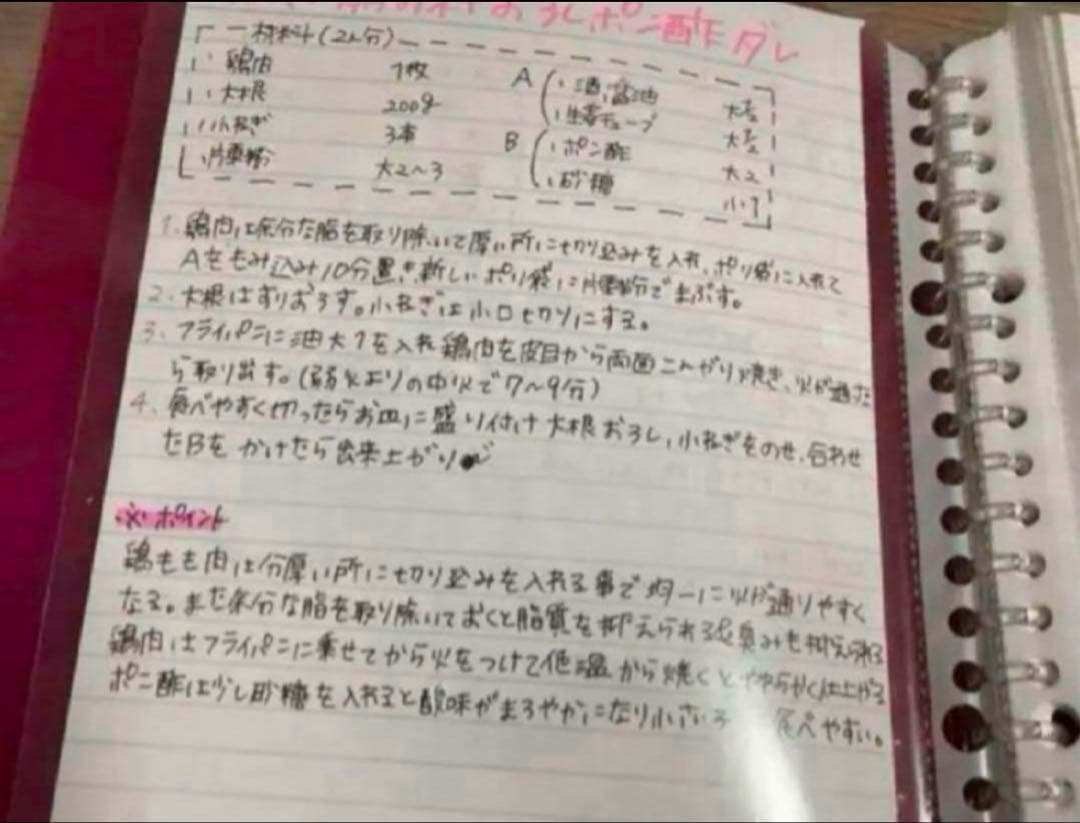 おろしポン酢ダレ
材料(2人分)
・鶏肉 1枚 A ・酒,醤油 大1/2
・大根 200g ・生姜チューブ 大1/2
・小ねぎ 3本 B ・ポン酢 大2
・片栗粉 大2〜3 ・砂糖 小1
1. 鶏肉は余分な脂を取り除いて厚い所に切り込みを入れ、ポリ袋に入れて
Aをもみ込み10分置き新しいポリ袋に片栗粉でまぶす。
2. 大根はすりおろす。小ねぎは小口切りにする。
3. フライパンに油大1を入れ鶏肉を皮目から両面こんがり焼き、火が通った
ら取り出す。(弱火よりの中火で7〜9分)
4. 食べやすく切ったらお皿に盛り付け大根おろし、小ねぎをのせ、合わせ
たBをかけたら出来上がり
※ポイント
鶏もも肉は分厚い所に切り込みを入れる事で均一に火が通りやすく
なる。また余分な脂を取り除いておくと脂質を抑えられる&臭みも抑えられる
鶏肉はフライパンに乗せてから火をつけて低温から焼くとやわらかく仕上がる
ポン酢は少し砂糖を入れると酸味がまろやかになり小さい 食べやすい。